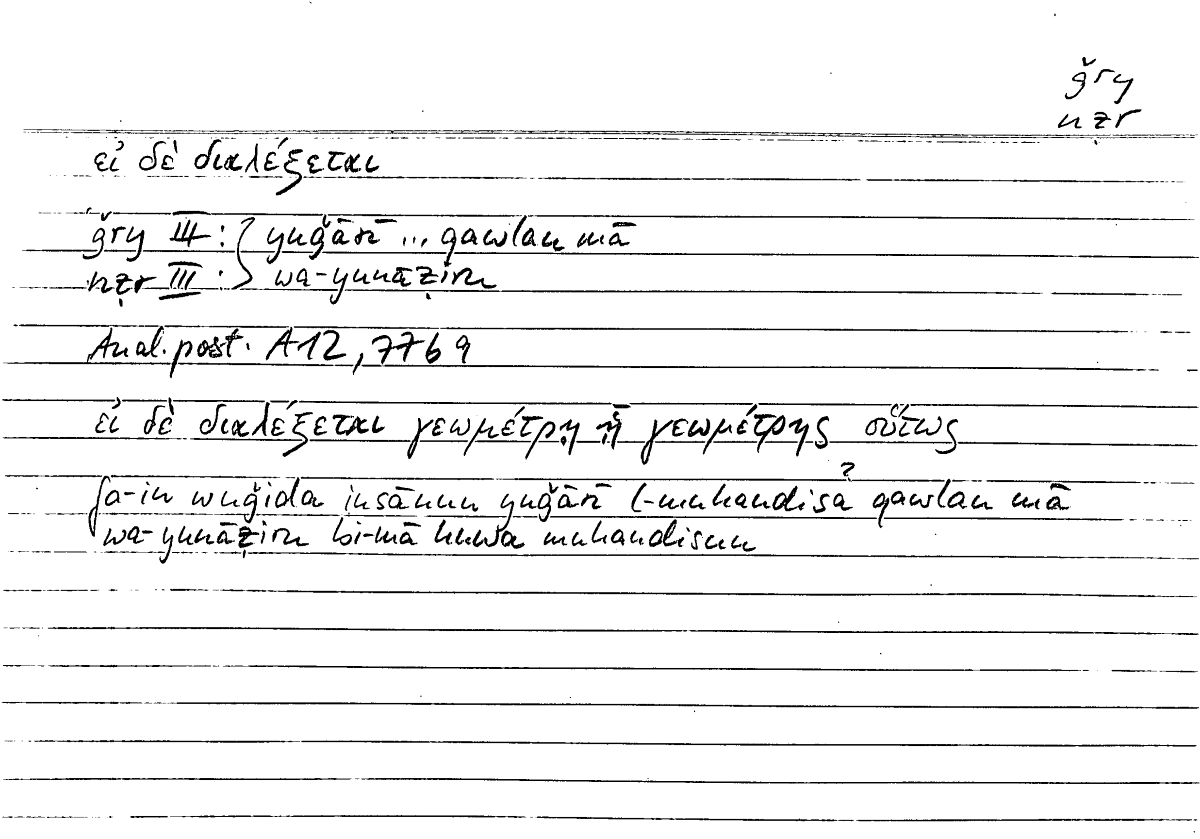 ǧry
nẓr
εἰ δὲ διαλέξεται
ǧry III : yuǧārī ... qawlan mā
nẓr III : wa-yunāẓiru
Anal. post. A12, 77b9
εἰ δὲ διαλέξεται γεωμέτρῃ ᾗ γεωμέτρης οὕτως
?
fa-in wuǧida insānun yuǧārī l-muhandisa qawlan mā
wa-yunāẓiru bi-mā huwa muhandisun